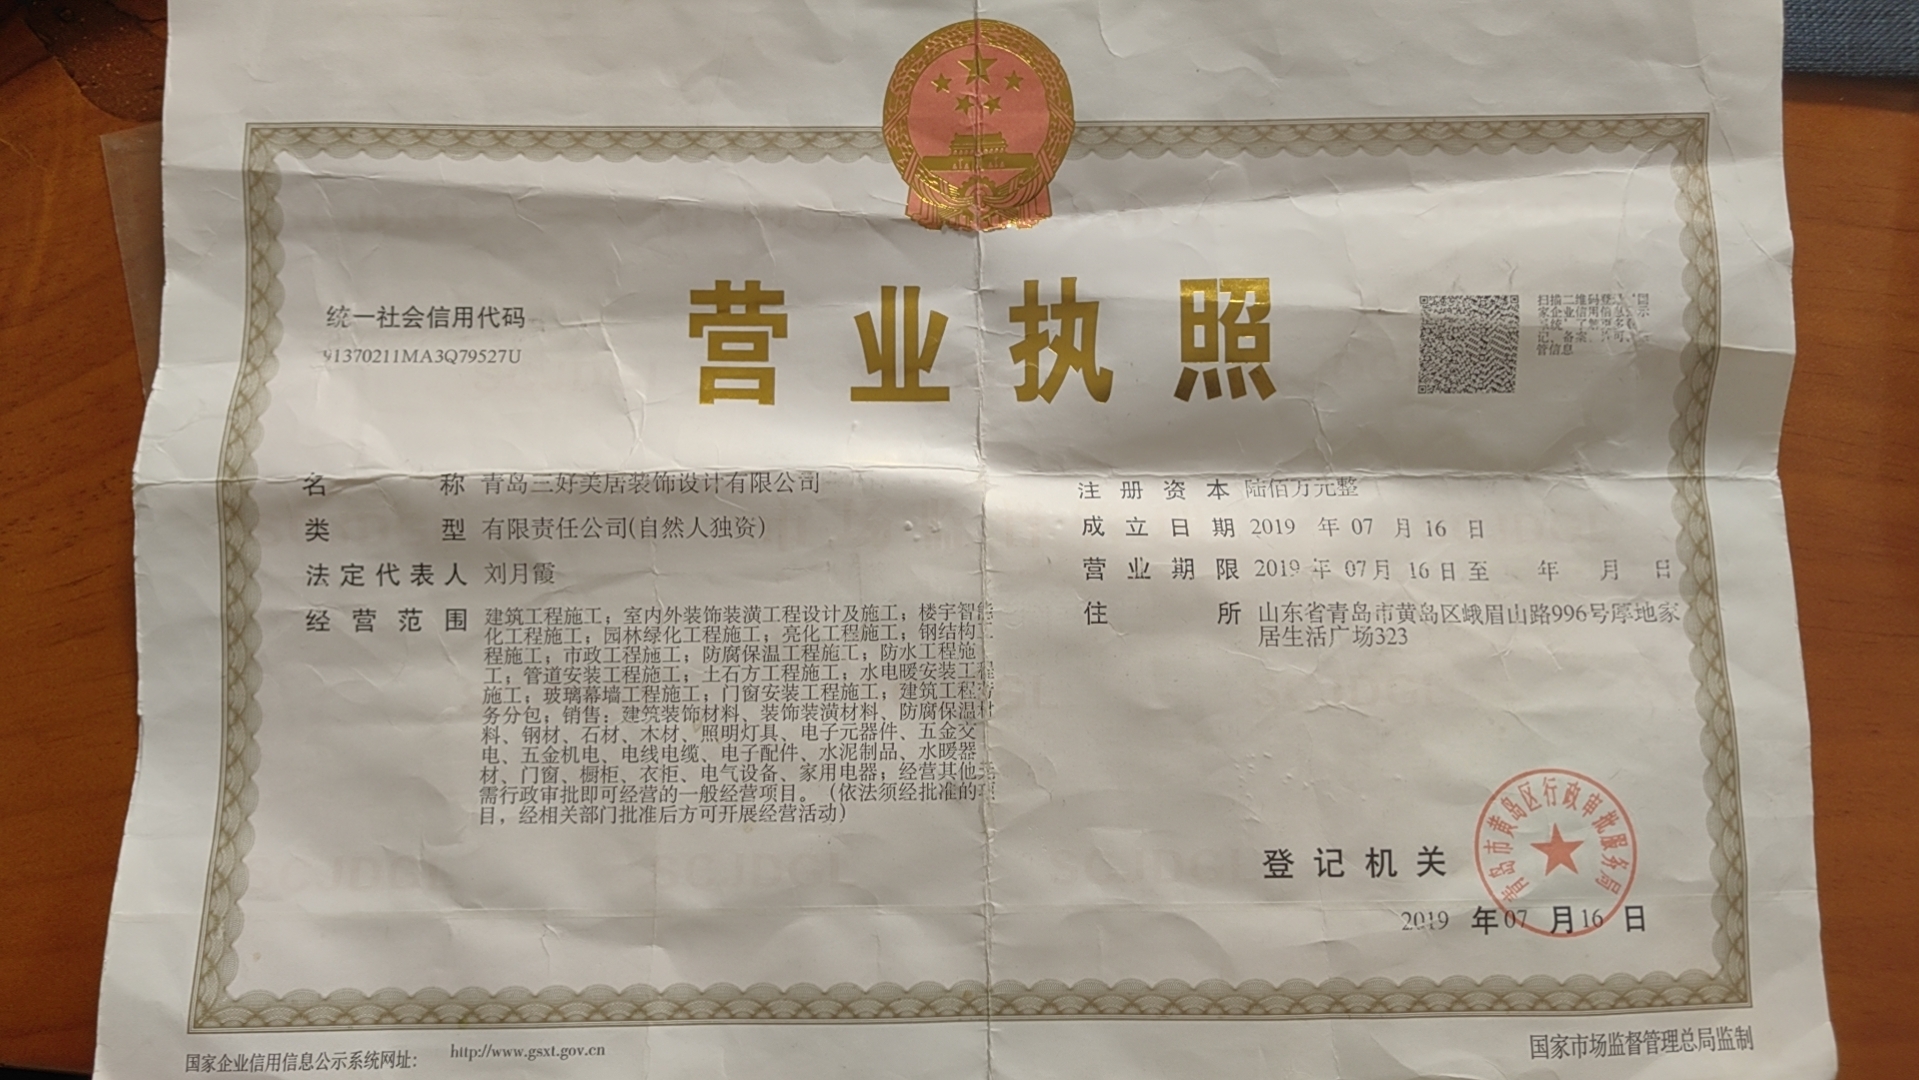 营业执照
统一社会信用代码
91370211MA3Q79527U
名 称 青岛三好美居装饰设计有限公司
类 型 有限责任公司(自然人独资)
法定代表人 刘月霞
经营范围 建筑工程施工；室内外装饰装潢工程设计及施工；楼宇智能
化工程施工；园林绿化工程施工；亮化工程施工；钢结构工
程施工；市政工程施工；防腐保温工程施工；防水工程施
工；管道安装工程施工；土石方工程施工；水电暖安装工程
施工；玻璃幕墙工程施工；门窗安装工程施工；建筑工程劳
务分包；销售：建筑装饰材料、装饰装潢材料、防腐保温材
料、钢材、石材、木材、照明灯具、电子元器件、五金交
电、五金机电、电线电缆、电子配件、水泥制品、水暖器
材、门窗、橱柜、衣柜、电气设备、家用电器；经营其他无
需行政审批即可经营的一般经营项目。（依法须经批准的项
目，经相关部门批准后方可开展经营活动）
注册资本 陆佰万元整
成立日期 2019 年 07 月 16 日
营业期限 2019 年 07 月 16 日 至 年 月 日
住 所 山东省青岛市黄岛区峨眉山路996号厚地家
居生活广场323
登记机关
青岛市黄岛区行政审批服务局
2019 年 07 月 16 日
国家企业信用信息公示系统网址： http://www.gsxt.gov.cn
国家市场监督管理总局监制